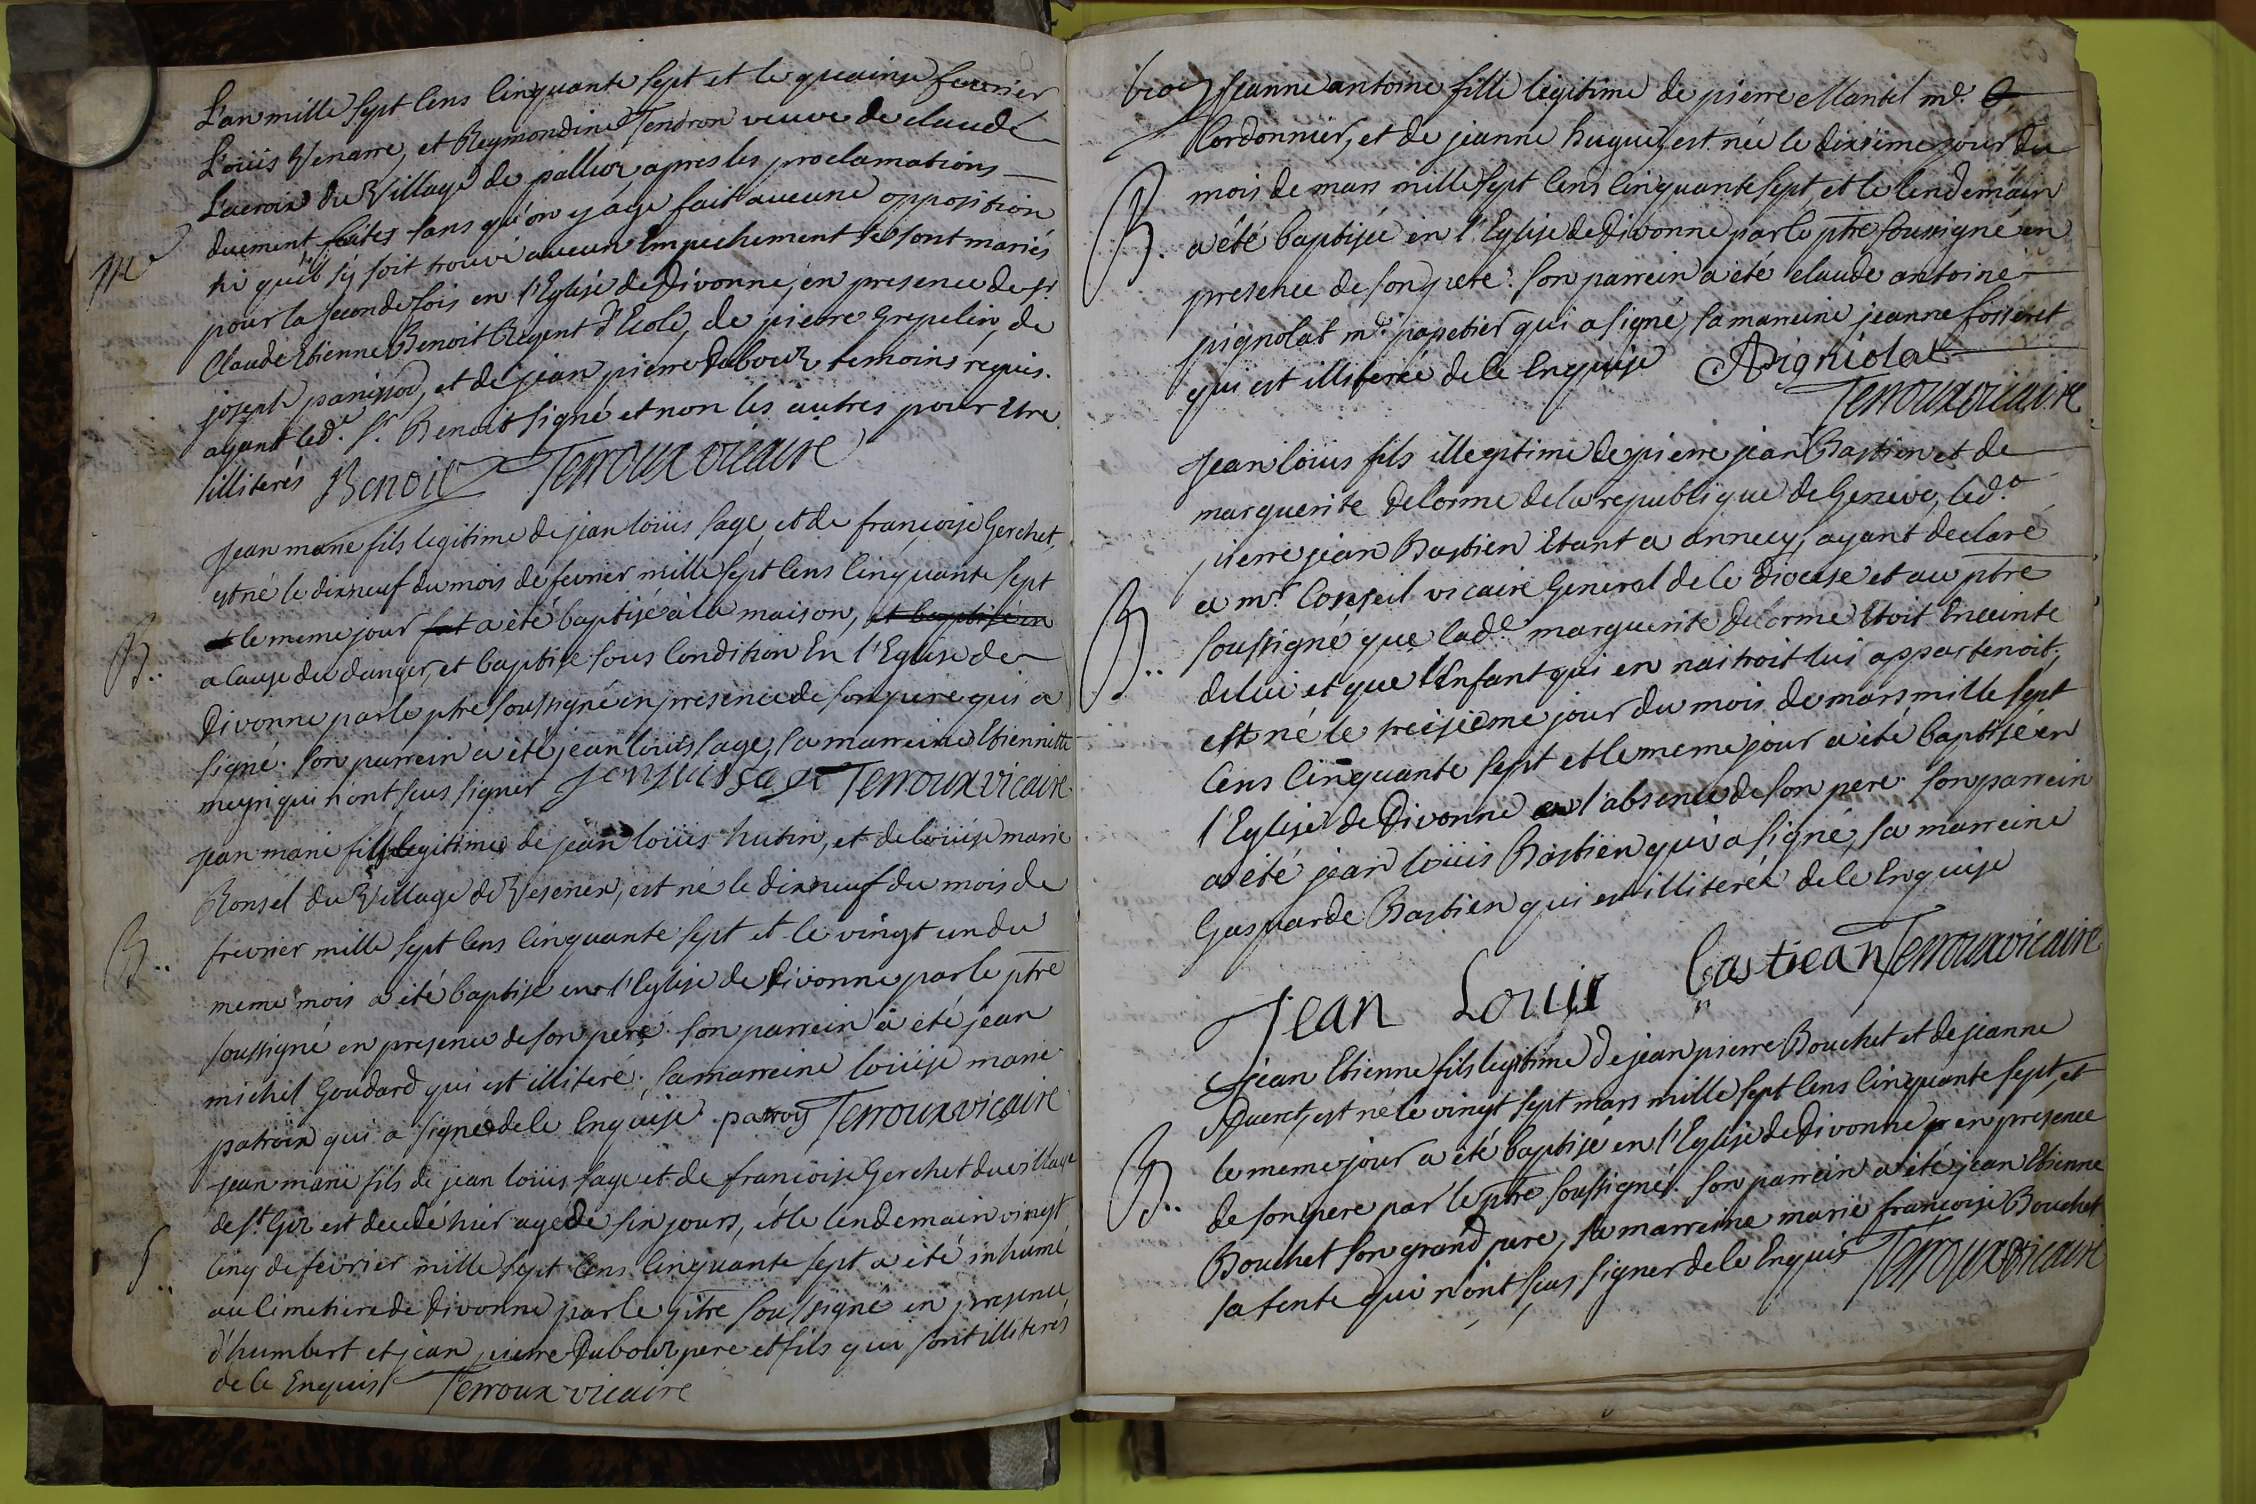 L'an mille Sept Cens Cinquante Sept et le quainse fevrier
Loüis Venarre, et Reymondine Tendron veuve de claude
Lacroix du Village de palleir apres les proclamations
duement faites sans qu'on y aye fait aucune opposition
M
ni qu'il s'y soit trouvé aucun Empechement se sont mariés
pour la seconde fois en l'Eglise de Divonne, en presence de Sr.
Claude Etienne Benoit Regent d'Ecole, de pierre Grepelin, de
joseph panissod, et de jean pierre Dabouz temoins requis.
ayant led.t Sr. Benoit signé et non les autres pour Etre
illiterés Benoit Terroux vicaire
Jean marie fils legitime de jean loüis sage, et de francoise Gerchet,
est né le dixneuf du mois de fevrier mille sept Cens Cinquante sept
B..
et le meme jour fut a été baptisé à la maison, et baptisé en
a cause du danger, et baptise sous Condition En l'Eglise de
Divonne par le ptre soussigné en presence de son pere qui a
signé. son parrein a été jean loüis sage, sa marreine Etiennette
meyri qui n'ont seus signer jan luis sage Terroux vicaire
jean marie fils legitime de jean loüis hutin, et de loüise marie
Ronsel du Village de Vesenex, est né le dixneuf du mois de
B..
frevrier mille sept Cens Cinquante sept et le vingt un du
meme mois a été baptisé en l'Eglise de Divonne par le ptre
soussigné en presence de son pere. son parrein a été jean
michel Goudard qui est illiteré. sa marreine loüise marie
patroix qui a signé de ce Enquise patroy Terroux vicaire
jean marie fils de jean loüis sage et de francoise Gerchet du village
de St. Gix est decedé hier agé de six jours, et le lendemain vingt
S..
Cinq de fevrier mille sept Cens Cinquante sept a été inhumé
au Cimetiere de Divonne par le ptre soussigné en presence
d'humbert et jean pierre Dabouz pere et fils qui sont illiterés
de ce Enquis Terroux vicaire
Jeanne antoine fille legitime de pierre Mantel md.
Cordonnier, et de jeanne hugue, est née le dixsieme jour du
B.
mois de mars mille sept Cens Cinquante sept, et le lendemain
a été baptisée en l'Eglise de Divonne par le ptre soussigné en
presence de son pere. son parrein a été claude antoine
pignolat md. papetier qui a signé, sa marreine jeanne fosseret
qui est illiterée de ce Enquise APigniolat
Terroux vicaire
Jean loüis fils illegitime de pierre jean Bastien et de
marguerite Delorme de la republique de Geneve, led.t
pierre jean Bastien Etant a annecy, ayant declaré
B..
a mr. Conseil vicaire General de ce Diocese et au ptre
soussigné que lad.e marguerite Delorme Etoit Enceinte
de lui et que l'Enfant qui en naitroit lui appartenoit,
est né le treizieme jour du mois de mars mille sept
Cens Cinquante sept et le meme jour a été baptisé en
l'Eglise de Divonne en l'absence de son pere. son parrein
a été jean loüis Bastien qui a signé, sa marreine
Gasparde Bastien qui est illiterée de ce Enquise
Jean Louis bastiean Terroux vicaire
jean Etienne fils legitime de jean pierre Bouchet et de jeanne
Dueret, est né le vingt sept mars mille sept Cens Cinquante sept, et
B..
le meme jour a été baptisé en l'Eglise de Divonne en presence
de son pere par le ptre soussigné. son parrein a été jean Etienne
Bouchet son grand pere, sa marreine marie francoise Bouchet
sa tente qui n'ont seus signer de ce Enquis Terroux vicaire